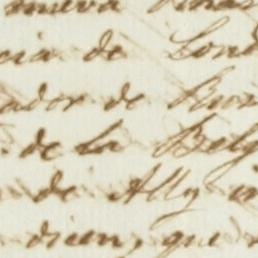 nueva
cia de Lond
ador de Rus
de la Belg
de Ally
dicen, que